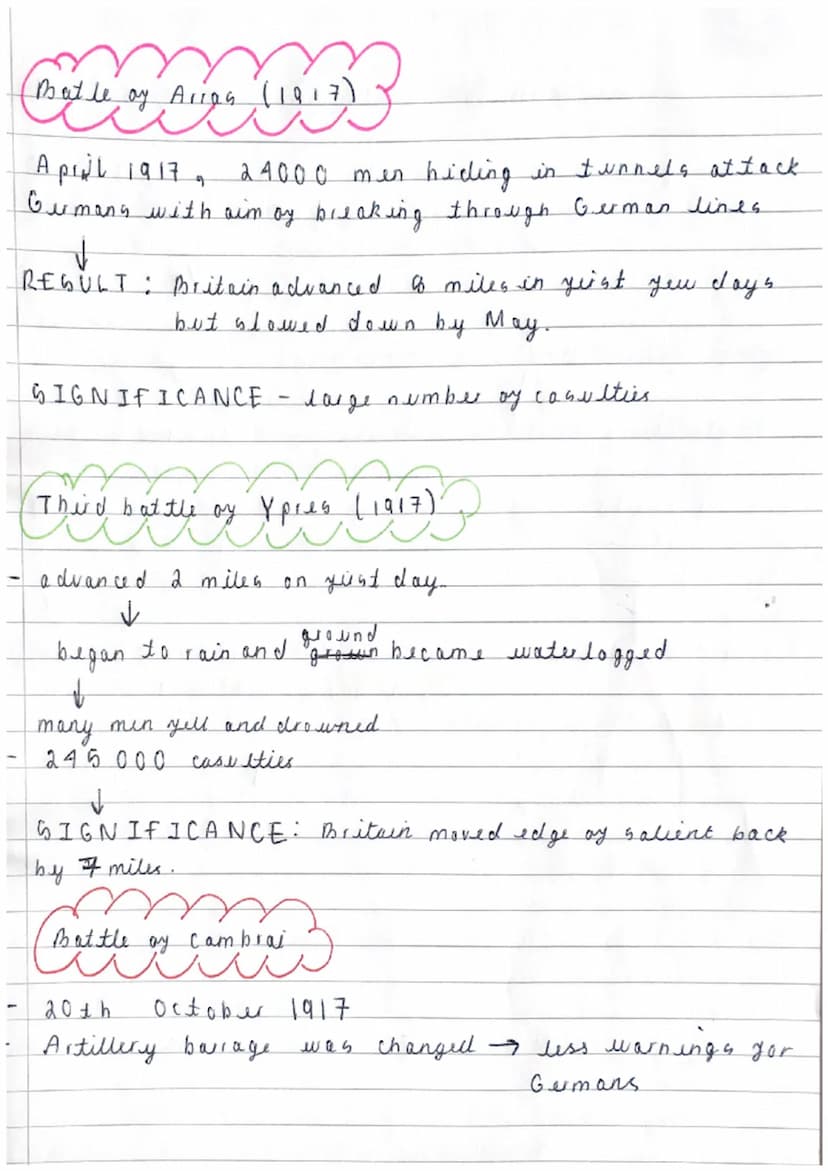 Battle of Arras (1917)
April 1917, 24000 men hiding in tunnels attack
Germans with aim of breaking through German lines
↓
RESULT: Britain advanced 8 miles in first few days
but slowed down by May.
SIGNIFICANCE - large number of casulties
Third battle of Ypres (1917)
- advanced 2 miles on first day.
↓
began to rain and ground became waterlogged
↓
many men fell and drowned
- 245 000 casulties
↓
SIGNIFICANCE: Britain moved edge of salient back
by 7 miles.
Battle of Cambrai
- 20th October 1917
- Artillery barrage was changed → less warnings for
Germans